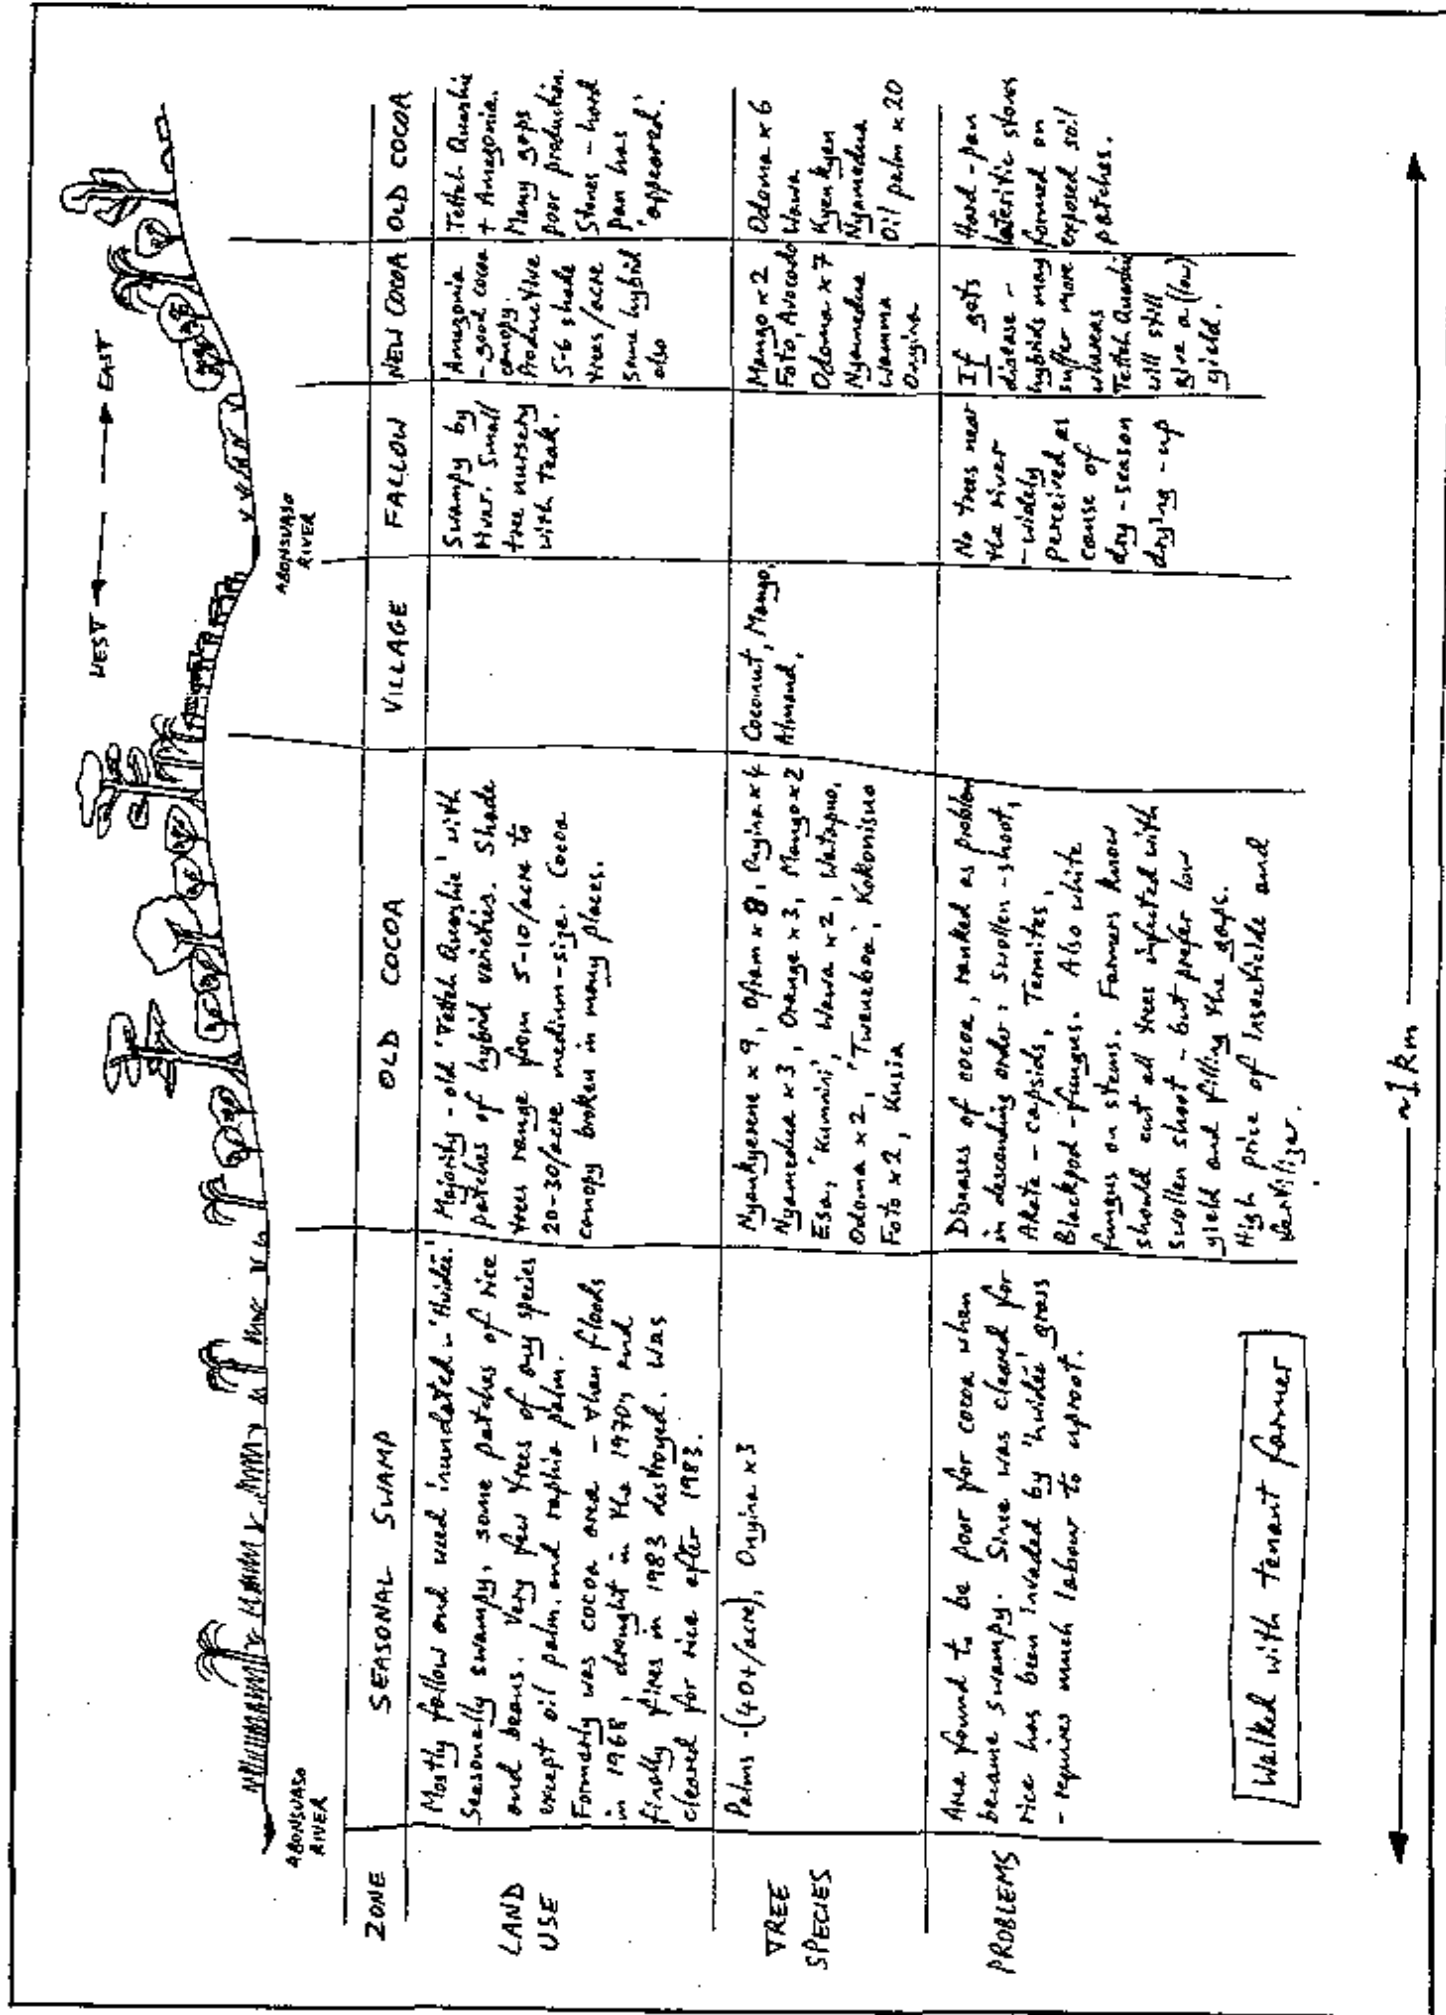 WEST EAST
ABONSUASO
RIVER
ABONSUASO
RIVER
ZONE
SEASONAL SWAMP
OLD COCOA
VILLAGE
FALLOW
NEW COCOA
OLD COCOA
LAND
USE
Mostly fallow and weed inundated - 'Hwidie'.
Seasonally swampy, some patches of rice
and beans. Very few trees of any species
except oil palm, and raphia palm.
Formerly was cocoa area - when floods
in 1968, drought in the 1970s and
finally fires in 1983 destroyed. Was
cleared for rice after 1983.
Majority - old 'Tetteh Quarshie' with
patches of hybrid varieties. Shade
trees range from 5-10/acre to
20-30/acre medium-size. Cocoa
canopy broken in many places.
Swampy by
river. Small
tree nursery
with teak.
Amazonia
- good cocoa
canopy.
Productive
5-6 shade
trees/acre
Some hybrid
also
Tetteh Quarshie
+ Amazonia.
Many gaps
poor production.
Stones - hard
pan has
'appeared'.
TREE
SPECIES
Palms - (40+/acre), Onyina x3
Nyankyerene x 9, Ofram x 8, Onyina x 4
Nyamedua x 3, Orange x 3, Mango x 2
Esa, 'Kumnini', Wawa x 2, Watapuo,
Odoma x 2, 'Tweneboa', Kokonisuo
Foto x 2, Kusia
Coconut, Mango,
Almond,
Mango x 2
Foto, Avocado
Odoma x 7
Nyamedua
Wamma
Onyina
Odoma x 6
Wawa
Kyenkyen
Nyamedua
Oil palm x 20
PROBLEMS
Area found to be poor for cocoa when
became swampy. Since was cleared for
rice has been invaded by 'hwidie' grass
- requires much labour to uproot.
Diseases of cocoa, ranked as problem
in descending order: swollen-shoot,
Akate - capsids, Termites,
Blackpod-fungus. Also white
fungus on stems. Farmers know
should cut all trees infected with
swollen shoot - but prefer low
yield and filling the gaps.
High price of insecticide and
fertilizer.
No trees near
the river
- widely
perceived as
cause of
dry-season
drying-up
If gets
disease -
hybrids may
suffer more
whereas
Tetteh Quarshie
will still
give a (low)
yield.
Hard-pan
lateritic stones
formed on
exposed soil
patches.
Walked with tenant farmer
~1km